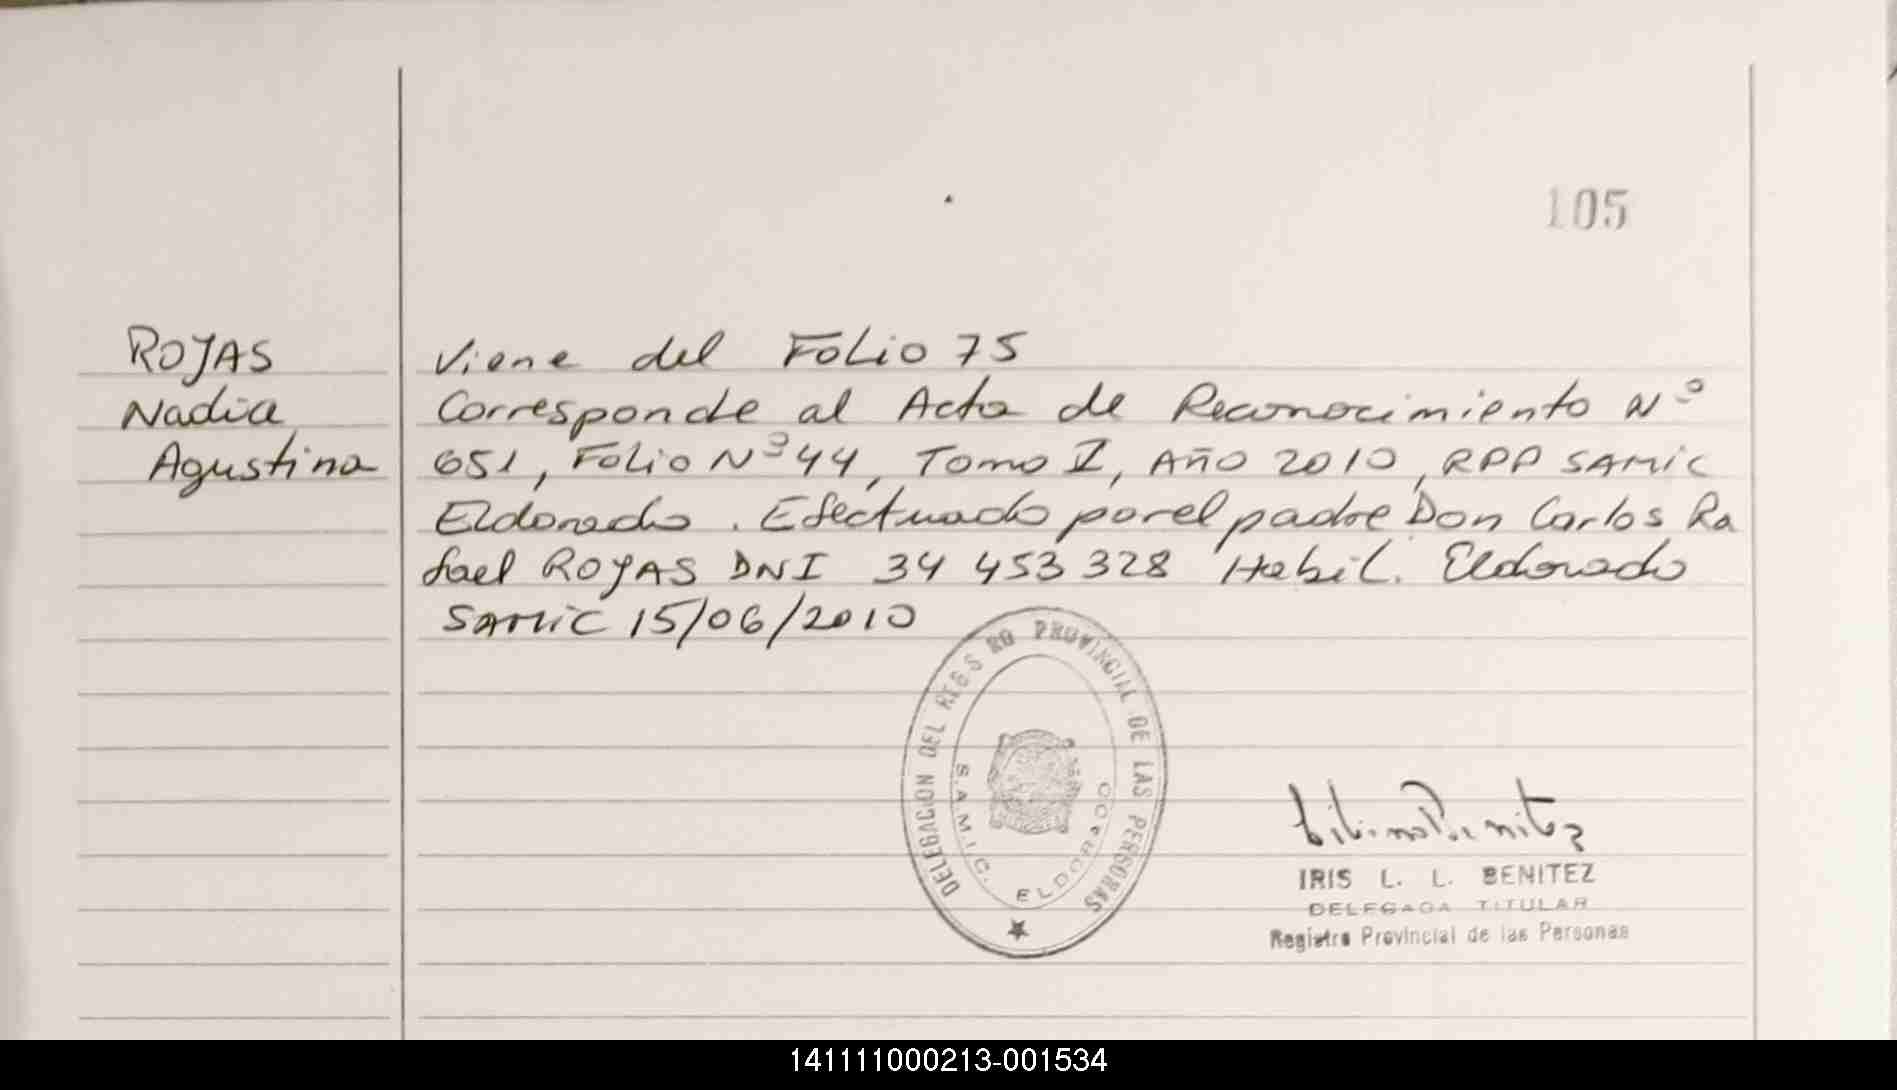 105
ROJAS
Nadia
Agustina
Viene del Folio 75
Corresponde al Acta de Reconocimiento Nº
651, Folio Nº 44, Tomo I, Año 2010, RPP SAMIC
Eldorado. Efectuado por el padre Don Carlos Ra
fael ROJAS DNI 34 453 328 Habil. Eldorado
SAMIC 15/06/2010
DELEGACION DEL REGIS RO PROVINCIAL DE LAS PERSONAS
S.A.M.I.C. ELDORADO
IRIS L. L. BENITEZ
DELEGADA TITULAR
Registro Provincial de las Personas
141111000213-001534